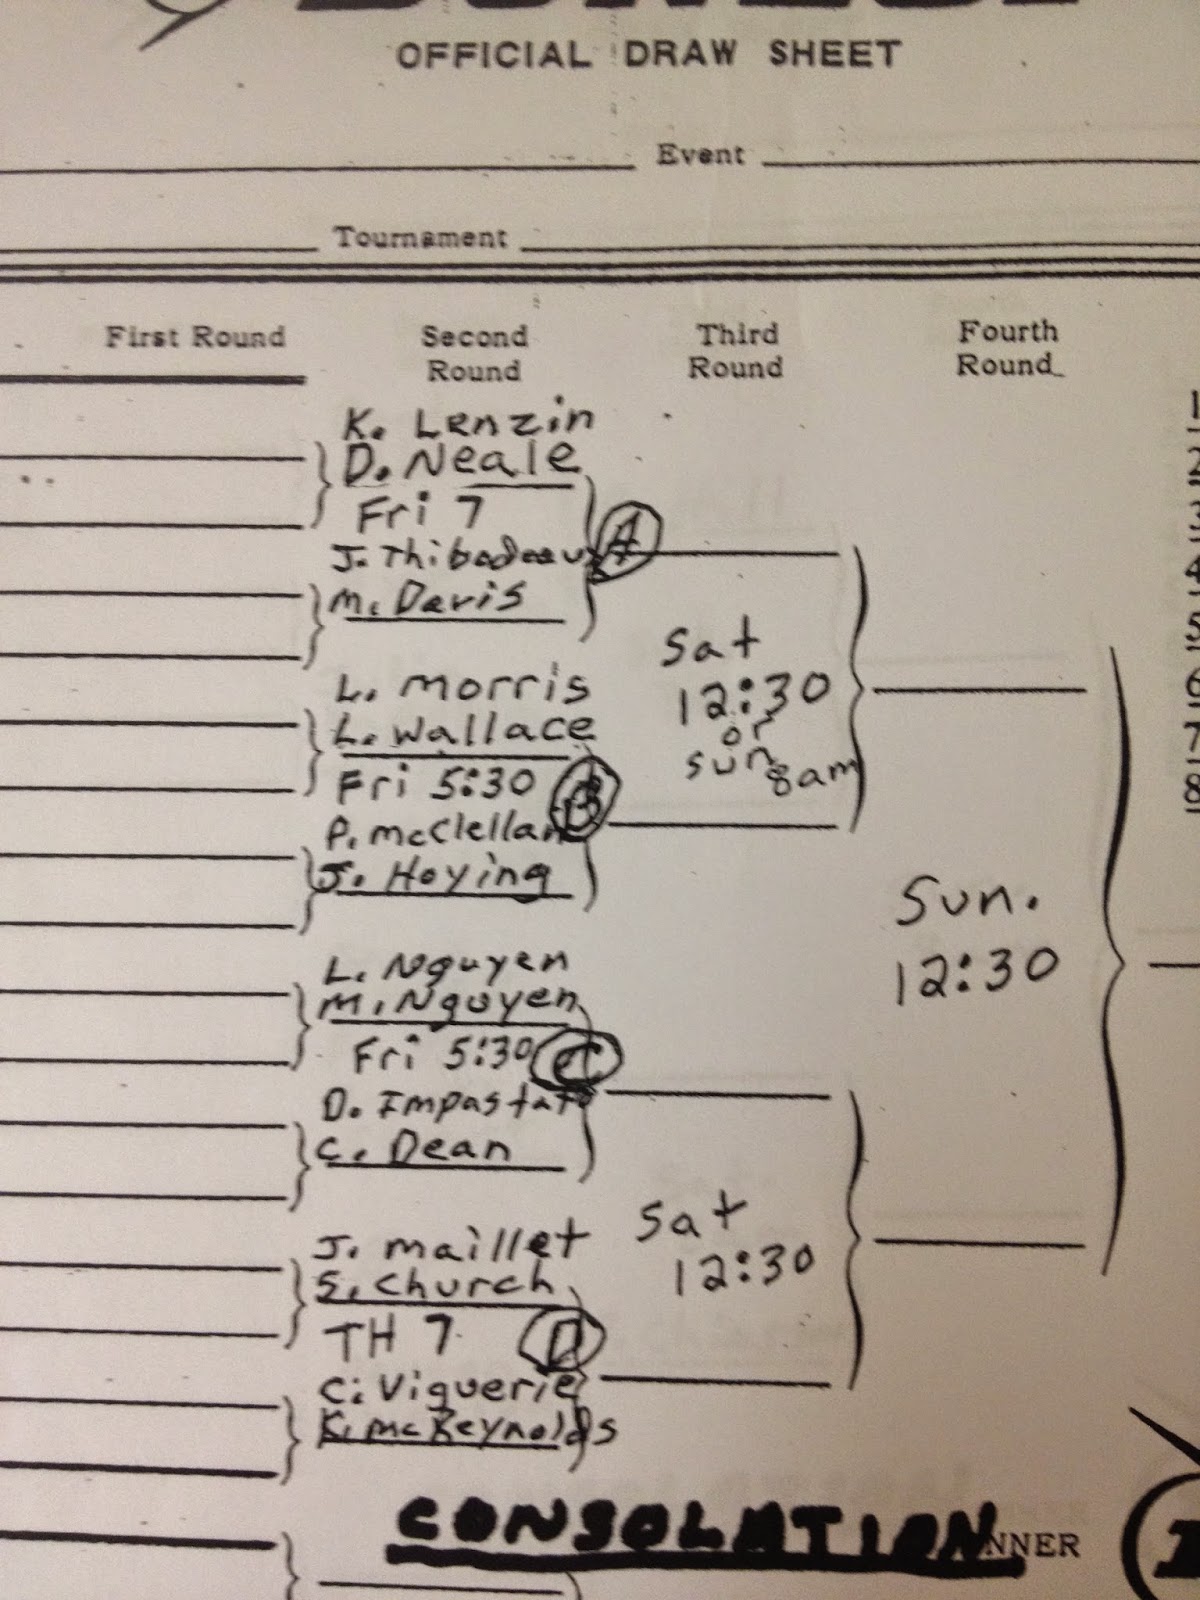 OFFICIAL DRAW SHEET
Event
Tournament
First Round
Second Round
Third Round
Fourth Round
K. Lenzin
D. Neale
Fri 7
A
J. Thibodeaux
M. Davis
Sat
12:30
or
sun 8am
L. Morris
L. Wallace
Fri 5:30
B
P. McClellan
J. Hoying
Sun.
12:30
L. Nguyen
M. Nguyen
Fri 5:30
C
D. Impastato
C. Dean
Sat
12:30
J. Maillet
S. Church
TH 7
D
C. Viguerie
K. McReynolds
CONSOLATION
NNER
1
2
3
4
5
6
7
8